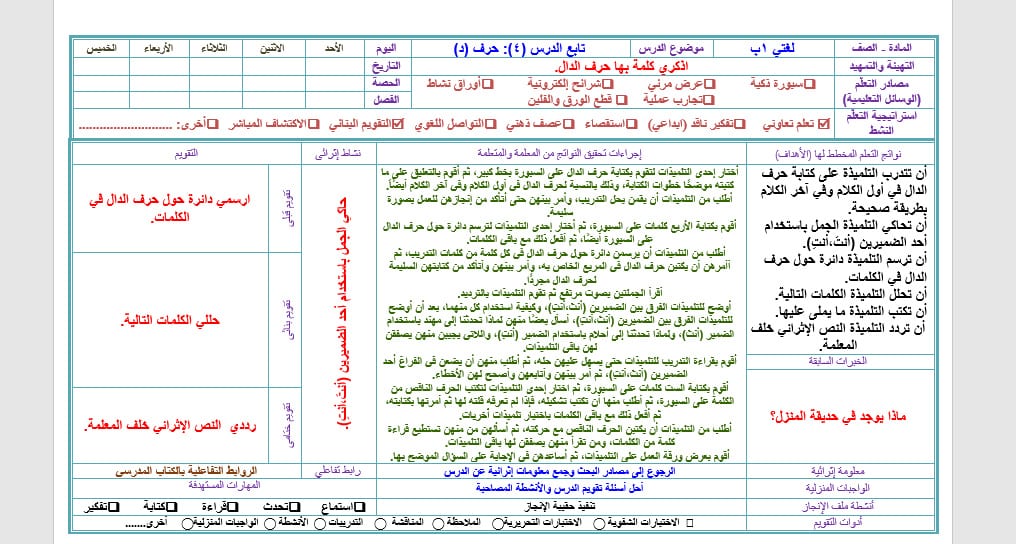 المادة - الصف لغتي ١ب موضوع الدرس تابع الدرس (٤): حرف (د) اليوم الأحد الاثنين الثلاثاء الأربعاء الخميس
التهيئة والتمهيد اذكري كلمة بها حرف الدال. التاريخ
مصادر التعلّم سبورة ذكية عرض مرئي شرائح إلكترونية أوراق نشاط الحصة
(الوسائل التعليمية) تجارب عملية قطع الورق والفلين الفصل
استراتيجية التعلّم النشط تعلم تعاوني تفكير ناقد (ابداعي) استقصاء عصف ذهني التواصل اللغوي التقويم البنائي الاكتشاف المباشر أخرى: ............................
نواتج التعلم المخطط لها (الأهداف) إجراءات تحقيق النواتج من المعلمة والمتعلمة نشاط إثرائي التقويم
أن تتدرب التلميذة على كتابة حرف
الدال في أول الكلام وفي آخر الكلام
بطريقة صحيحة.
أن تحاكي التلميذة الجمل باستخدام
أحد الضميرين (أنتَ،أنتِ).
أن ترسم التلميذة دائرة حول حرف
الدال في الكلمات.
أن تحلل التلميذة الكلمات التالية.
أن تكتب التلميذة ما يملى عليها.
أن تردد التلميذة النص الإثرائي خلف
المعلمة.
الخبرات السابقة
ماذا يوجد في حديقة المنزل؟
أختار إحدى التلميذات لتقوم بكتابة حرف الدال على السبورة بخط كبير، ثم أقوم بالتعليق على ما
كتبته موضحًا خطوات الكتابة، وذلك بالنسبة لحرف الدال في أول الكلام وفي آخر الكلام أيضًا.
أطلب من التلميذات أن يقمن بحل التدريب، وأمر بينهن حتى أتأكد من إنجازهن للعمل بصورة
سليمة.
أقوم بكتابة الأربع كلمات على السبورة، ثم أختار إحدى التلميذات لترسم دائرة حول حرف الدال
على السبورة أيضًا، ثم أفعل ذلك مع باقي الكلمات.
أطلب من التلميذات أن يرسمن دائرة حول حرف الدال في كل كلمة من كلمات التدريب، ثم
آأمرهن أن يكتبن حرف الدال في المربع الخاص به، وأمر بينهن وأتأكد من كتابتهن السليمة
لحرف الدال مجردًا.
أقرأ الجملتين بصوت مرتفع ثم تقوم التلميذات بالترديد.
أوضح للتلميذات الفرق بين الضميرين (أنتَ،أنتِ)، وكيفية استخدام كل منهما، بعد أن أوضح
للتلميذات الفرق بين الضميرين (أنتَ،أنتِ)، أسأل بعضًا منهن لماذا تحدثنا إلى مهند باستخدام
الضمير (أنتَ)، ولماذا تحدثنا إلى أحلام باستخدام الضمير (أنتِ)، واللاتي يجبن منهن يصفقن
لهن باقي التلميذات.
أقوم بقراءة التدريب للتلميذات حتى يسهل عليهن حله، ثم أطلب منهن أن يضعن في الفراغ أحد
الضميرين (أنتَ،أنتِ)، ثم أمر بينهن وأتابعهن وأصحح لهن الأخطاء.
أقوم بكتابة الست كلمات على السبورة، ثم اختار إحدى التلميذات لتكتب الحرف الناقص من
الكلمة على السبورة، ثم أطلب منها أن تكتب تشكيله، فإذا لم تعرفه قلته لها ثم أمرتها بكتابته،
ثم أفعل ذلك مع باقي الكلمات باختيار تلميذات أخريات.
أطلب من التلميذات أن يكتبن الحرف الناقص مع حركته، ثم أسألهن من منهن تستطيع قراءة
كلمة من الكلمات، ومن تقرأ منهن يصفقن لها باقي التلميذات.
أقوم بعرض ورقة العمل على التلميذات، ثم أساعدهن في الإجابة على السؤال الموضح بها.
حاكي الجمل باستخدام أحد الضميرين (أنتَ،أنتِ).
تقويم قبلي
ارسمي دائرة حول حرف الدال في
الكلمات.
تقويم بنائي
حللي الكلمات التالية.
تقويم ختامي
رددي النص الإثرائي خلف المعلمة.
معلومة إثرائية الرجوع إلى مصادر البحث وجمع معلومات إثرائية عن الدرس رابط تفاعلي الروابط التفاعلية بالكتاب المدرسي
الواجبات المنزلية أحل أسئلة تقويم الدرس والأنشطة المصاحبة المهارات المستهدفة
أنشطة ملف الإنجاز تنفيذ حقيبة الإنجاز استماع تحدث قراءة كتابة تفكير
أدوات التقويم الاختبارات الشفوية الاختبارات التحريرية الملاحظة المناقشة التدريبات الأنشطة الواجبات المنزلية أخرى.......